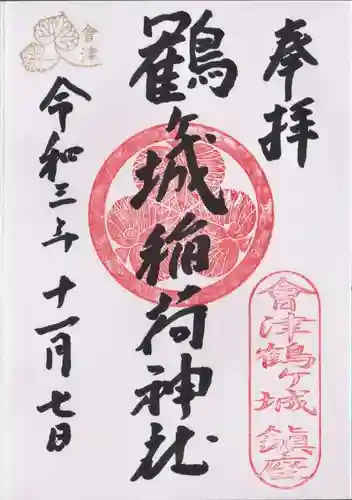 奉拝
鶴ヶ城稲荷神社
令和三年十一月七日
會津
會津鶴ヶ城鎮座